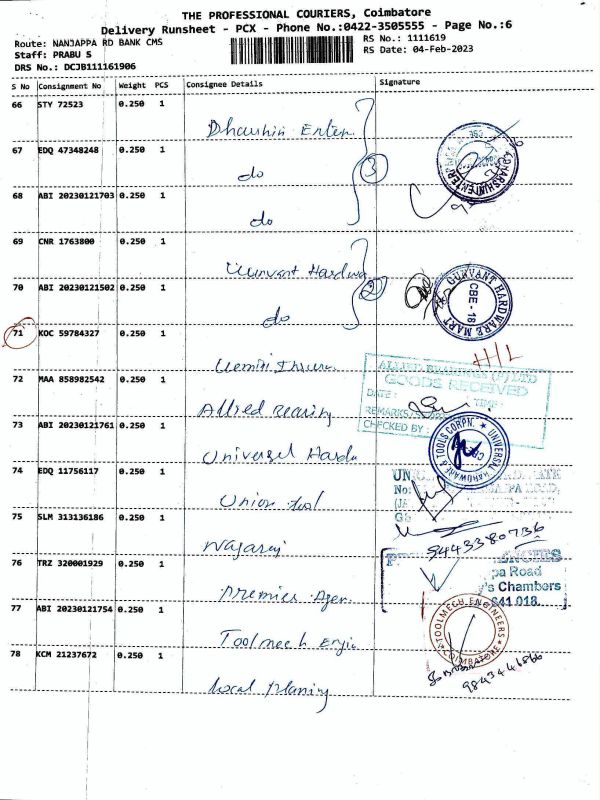 THE PROFESSIONAL COURIERS, Coimbatore
Delivery Runsheet - PCX - Phone No.:0422-3505555 - Page No.:6
Route: NANJAPPA RD BANK CMS
RS No.: 1111619
Staff: PRABU S
RS Date: 04-Feb-2023
DRS No.: DCJB111161906
S No Consignment No Weight PCS Consignee Details Signature
66 STY 72523 0.250 1
Dharshin Enter
67 EDQ 47348248 0.250 1
do 3
68 ABI 20230121703 0.250 1
do
69 CNR 1763800 0.250 1
Gunvant Hardwa
70 ABI 20230121502 0.250 1
do 2
GUNVANT HARDWARE MART
CBE - 18
71 KOC 59784327 0.250 1
H/L
ALLIED BEARINGS (P) LTD
GOODS RECEIVED
DATE: TIME:
REMARKS
CHECKED BY:
72 MAA 858982542 0.250 1
Allied Bearing
73 ABI 20230121761 0.250 1
Universal Hardw
UNIVERSAL HARDWARE & TOOLS CORPN.
74 EDQ 11756117 0.250 1
Union tool
75 SLM 313136186 0.250 1
Nagaraj
9443380736
76 TRZ 320001929 0.250 1
Premier Agen
pa Road
's Chambers
641 018.
77 ABI 20230121754 0.250 1
Toolmech Engin
TOOLMECH ENGINEERS
COIMBATORE
78 KCM 21237672 0.250 1
Local Planning
9843441866